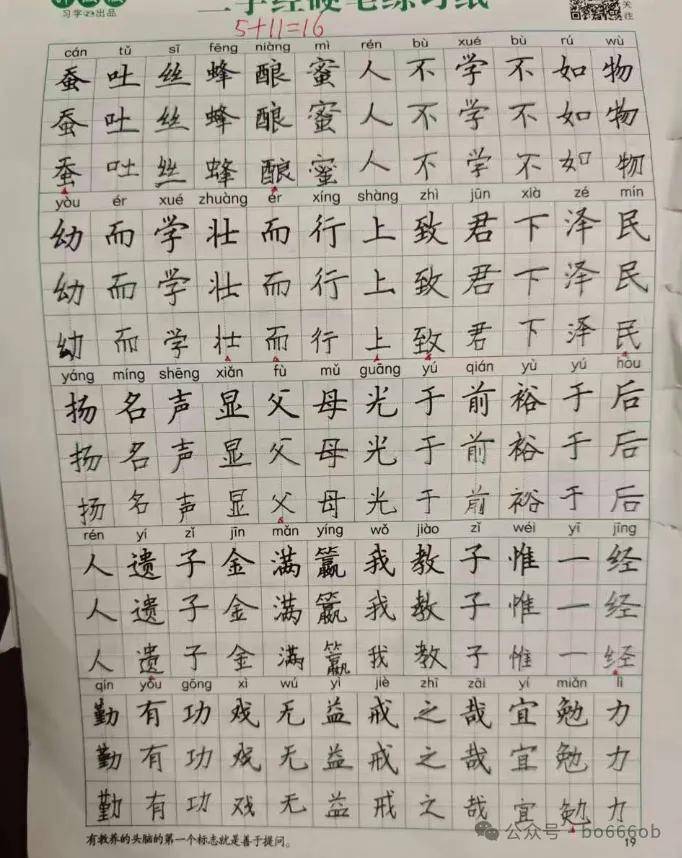 习字23出品
三字经硬笔练习纸
关注
5+11=16
cán tǔ sī fēng niàng mì rén bù xué bù rú wù
蚕吐丝蜂酿蜜人不学不如物
蚕吐丝蜂酿蜜人不学不如物
蚕吐丝蜂酿蜜人不学不如物
yòu ér xué zhuàng ér xíng shàng zhì jūn xià zé mín
幼而学壮而行上致君下泽民
幼而学壮而行上致君下泽民
幼而学壮而行上致君下泽民
yáng míng shēng xiǎn fù mǔ guāng yú qián yù yú hòu
扬名声显父母光于前裕于后
扬名声显父母光于前裕于后
扬名声显父母光于前裕于后
rén yí zǐ jīn mǎn yíng wǒ jiào zǐ wéi yī jīng
人遗子金满籯我教子惟一经
人遗子金满籯我教子惟一经
人遗子金满籯我教子惟一经
qín yǒu gōng xì wú yì jiè zhī zāi yí miǎn lì
勤有功戏无益戒之哉宜勉力
勤有功戏无益戒之哉宜勉力
勤有功戏无益戒之哉宜勉力
有教养的头脑的第一个标志就是善于提问。
19
公众号 bo666ob